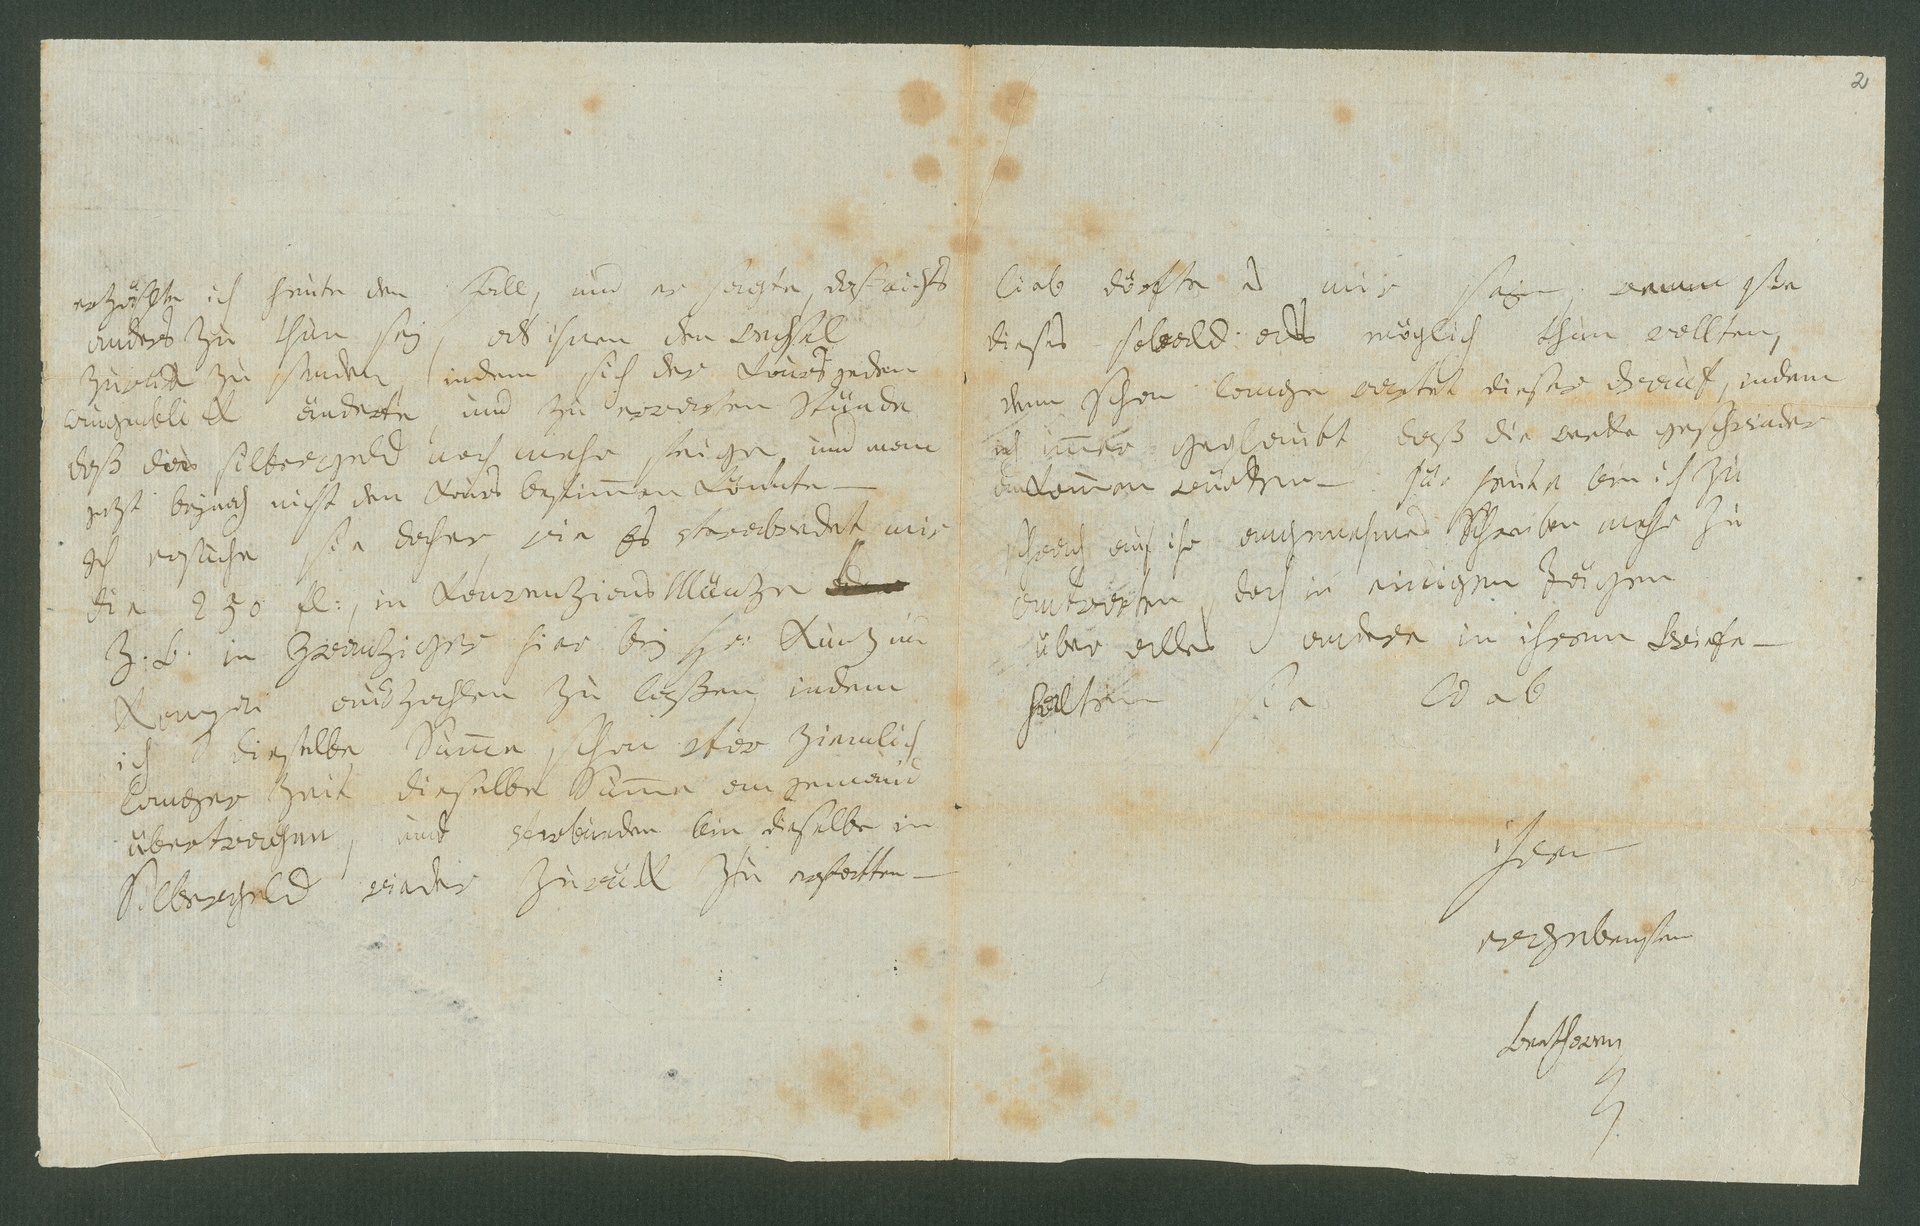 erzählte ich heute den Fall, und er sagte, daß nichts
anders zu thun sey, als ihnen den wechsel
zurück zu senden, indem sich der Kours jeden
augenblick änderte und zu erwarten Stünde
daß das silbergeld noch mehr steige, und man
jezt beynah nicht den Kours bestimmen könnte —
Ich ersuche sie daher wie es verabredet mir
die 250 fl:, in Konvenzions Münze
z.b. in zwanziger hier bey Hr: Kunz und
Kompgn auszahlen zu laßen, indem
ich dieselbe Summe schon vor ziemlich
langer Zeit dieselbe Summe an jemand
übertragen, und verbunden bin dieselbe in
Silbergeld wieder zurück zu erstatten —
2
lieb dörfte es mir seyn, wenn Sie
dieses sobald als möglich thun wollten,
denn schon lange wartet dieser drauf, indem
ich immer geglaubt daß die werke geschwinder
ankommen würden — für heute bin ich zu
schwach auf ihr angenehmes Schreiben mehr zu
antworten, doch in einigen Tägen
über alles andere in ihrem Briefe —
halten sie lieb
ihren
ergebensten
Beethowen